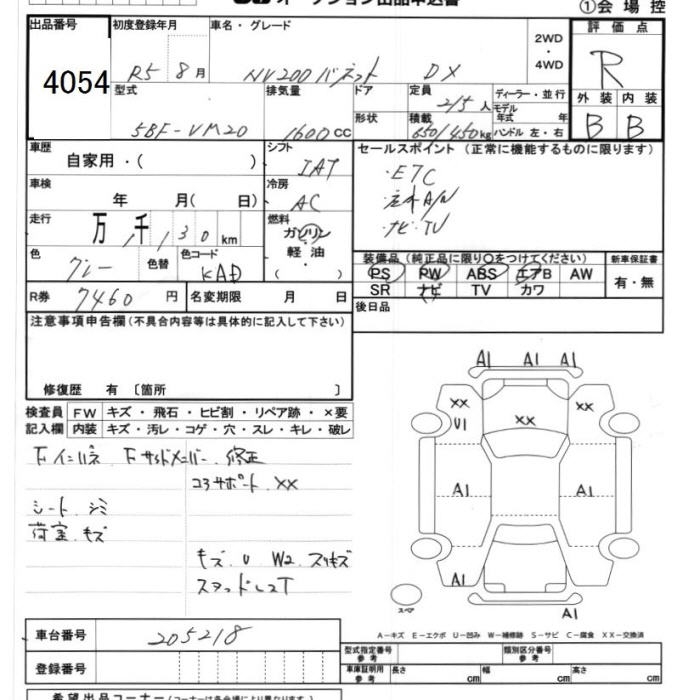 ①会 場 控
出品番号
4054
初度登録年月
R5 8月
車名・グレード
NV200バネット DX
2WD
・
4WD
評 価 点
R
外 装 内 装
B B
型式
5BF-VM20
排気量
1600cc
ドア
形状
定員
2/5人
積載
650/450kg
ディーラー・並行
モデル
年式 年
ハンドル 左・右
車歴
自家用・( )
シフト
IAT
車検
年 月( 日)
冷房
AC
走行
万 千
1,130km
燃料
ガソリン
軽油
( )
色
グレー
色替
色コード
KAD
R券
7460円
名変期限 月 日
セールスポイント(正常に機能するものに限ります)
・ETC
・社外A/N
・ナビ・TV
装備品(純正品に限り○をつけてください)
PS PW ABS エアB AW
SR ナビ TV カワ
新車保証書
有・無
後日品
注意事項申告欄(不具合内容等は具体的に記入して下さい)
修復歴 有〔箇所 〕
検査員 FW キズ・飛石・ヒビ割・リペア跡・×要
記入欄 内装 キズ・汚レ・コゲ・穴・スレ・キレ・破レ
Fインパネ Fサイドメンバー 修正
コアサポート XX
シート シミ
荷室 キズ
キズ U W2 スリキズ
スタッドレスT
A1 A1 A1
XX XX XX
U1
A1 A1
A1
A1
スペア
A-キズ E-エクボ U-凹み W-補修跡 S-サビ C-腐食 XX-交換済
車台番号
205218
登録番号
型式指定番号
参考
類別区分番号
参考
車庫証明用
参考
長さ cm 幅 cm 高さ cm